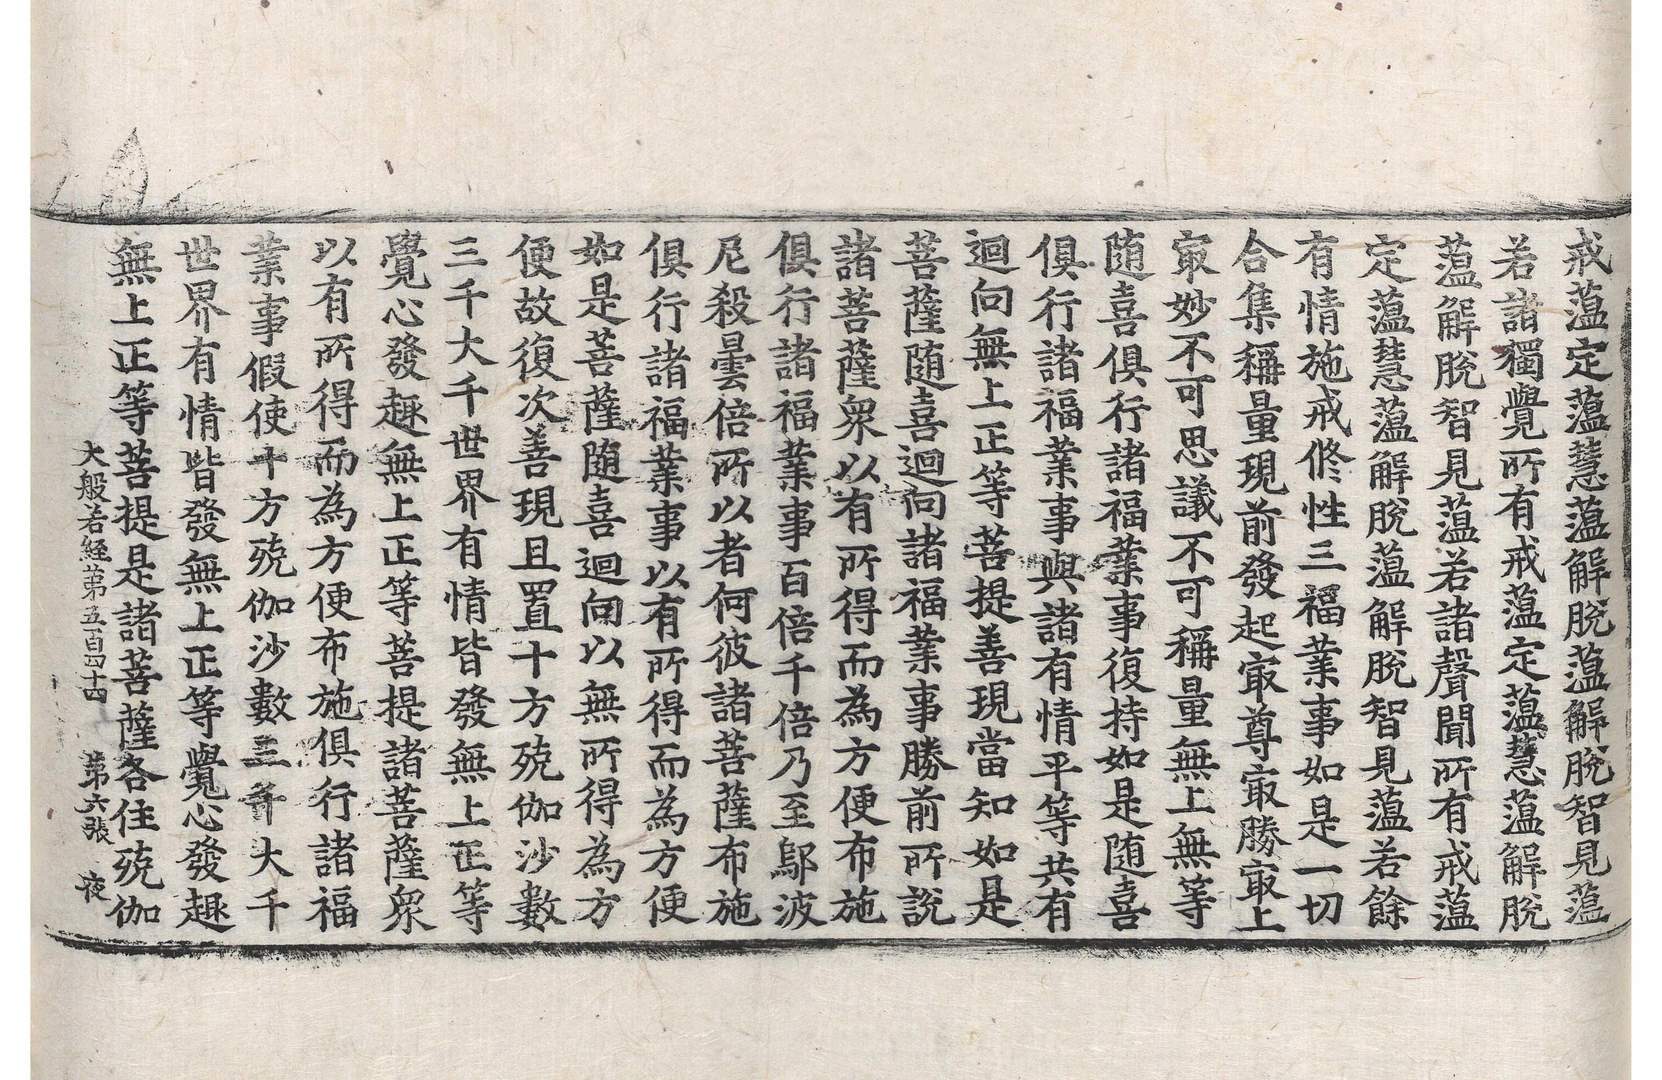 戒蕰定蕰慧蕰解脫蕰解脫智見蕰
若諸獨覺所有戒蕰定蕰慧蕰解脫
蕰解脫智見蕰若諸聲聞所有戒蕰
定蕰慧蕰解脫蕰解脫智見蕰若餘
有情施戒修性三福業事如是一切
合集稱量現前發起㝡尊㝡勝㝡上
㝡妙不可思議不可稱量無上無等
随喜俱行諸福業事復持如是随喜
俱行諸福業事與諸有情平等共有
迴向無上正等菩提善現當知如是
菩薩随喜迴向諸福業事勝前所說
諸菩薩衆以有所得而為方便布施
俱行諸福業事百倍千倍乃至鄔波
尼殺曇倍所以者何彼諸菩薩布施
俱行諸福業事以有所得而為方便
如是菩薩随喜迴向以無所得為方
便故復次善現且置十方殑伽沙數
三千大千世界有情皆發無上正等
覺心發趣無上正等菩提諸菩薩衆
以有所得而為方便布施俱行諸福
業事假使十方殑伽沙數三千大千
世界有情皆發無上正等覺心發趣
無上正等菩提是諸菩薩各住殑伽
大般若經第五百四十四 第六張 夜